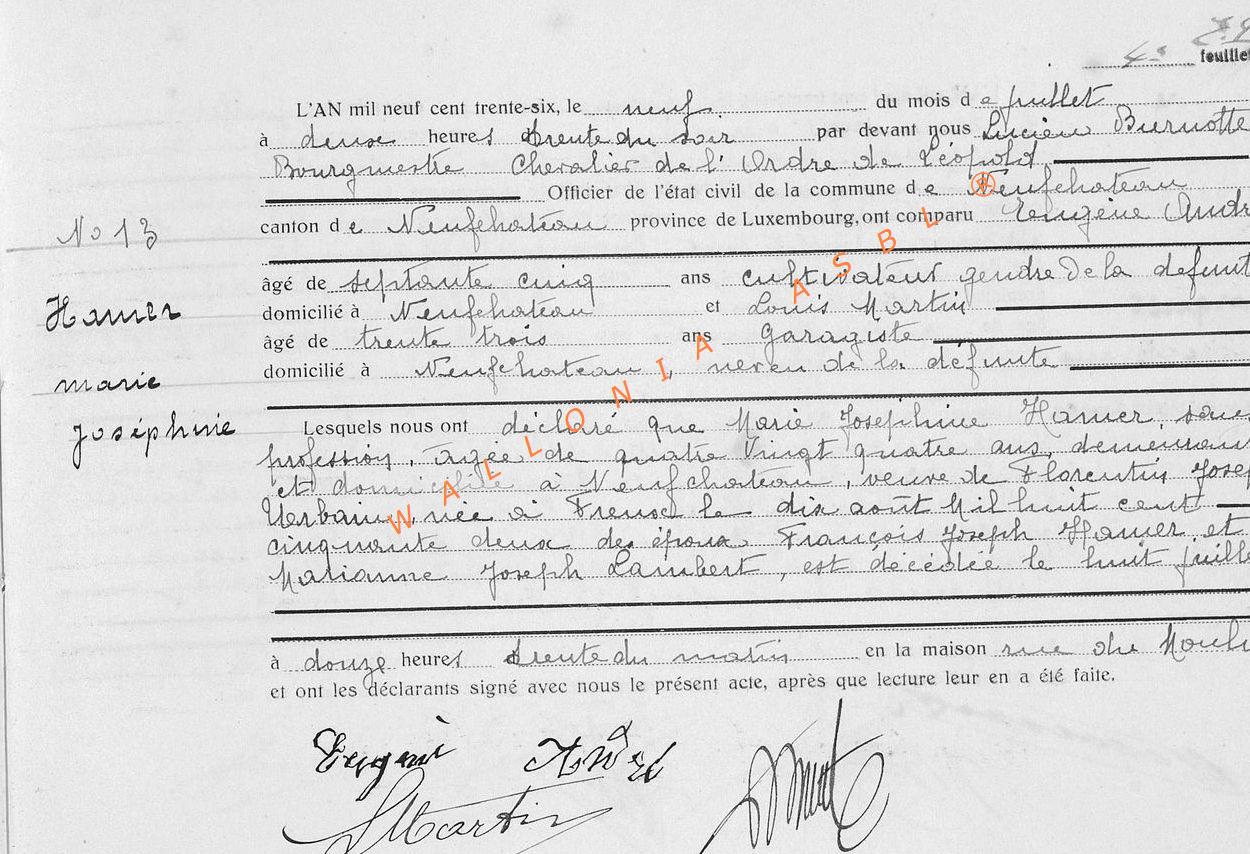 4e feuillet
L'AN mil neuf cent trente-six, le neuf du mois de juillet
à deux heures trente du soir par devant nous Lucien Burnotte
Bourgmestre Chevalier de l'Ordre de Léopold
Officier de l'état civil de la commune de Neufchateau
canton de Neufchateau province de Luxembourg, ont comparu Eugène André
No 13
âgé de septante cinq ans cultivateur gendre de la defunt
Hamer
domicilié à Neufchateau et Louis Martin
âgé de trente trois ans garagiste
domicilié à Neufchateau, neveu de la défunte
marie
Joséphine
Lesquels nous ont déclaré que Marie Josephine Hamer, sans
profession, agée de quatre vingt quatre ans, demeurant
et domiciliée à Neufchateau, veuve de Florentin Josep
Urbain, née à Freux le dix août Mil huit cent
cinquante deux des époux François Joseph Hamer et
Marianne Joseph Lambert, est décédée le huit juill
à douze heures trente du matin en la maison rue du Mouli
et ont les déclarants signé avec nous le présent acte, après que lecture leur en a été faite.
Eugène André
LMartin
WALLONIA ASBL ®